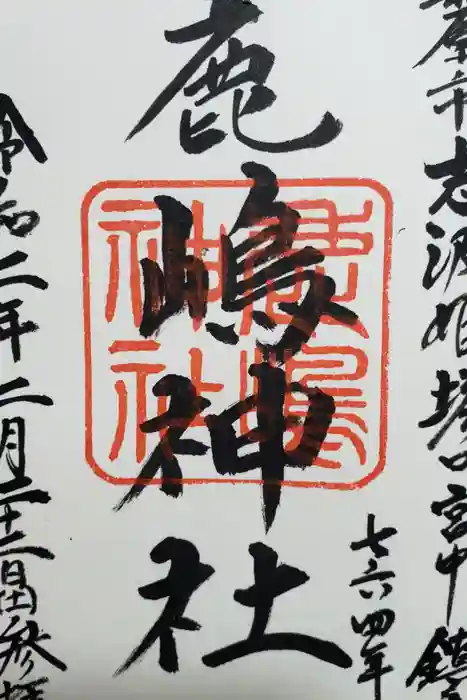 志波姫堀口宮中鎮
七六四年
鹿嶋神社
鹿嶋神社
令和二年二月二十二日参拝